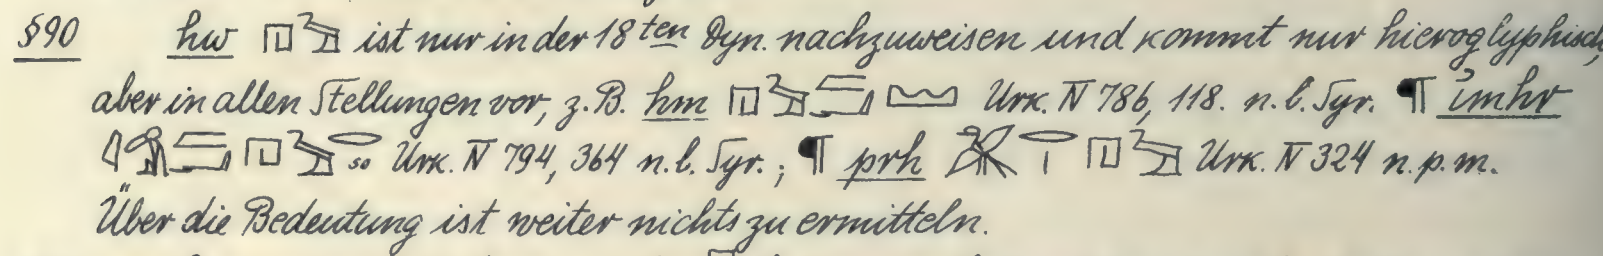 §90 hw 𓉔𓅱 ist nur in der 18ten Dyn. nachzuweisen und kommt nur hieroglyphisch,
aber in allen Stellungen vor, z. B. hm Urk. IV 786, 118. n. l. Syr. ¶ i҆mhr
so Urk. IV 794, 364 n. l. Syr.; ¶ prh Urk. IV 324 n. p. m.
Über die Bedeutung ist weiter nichts zu ermitteln.